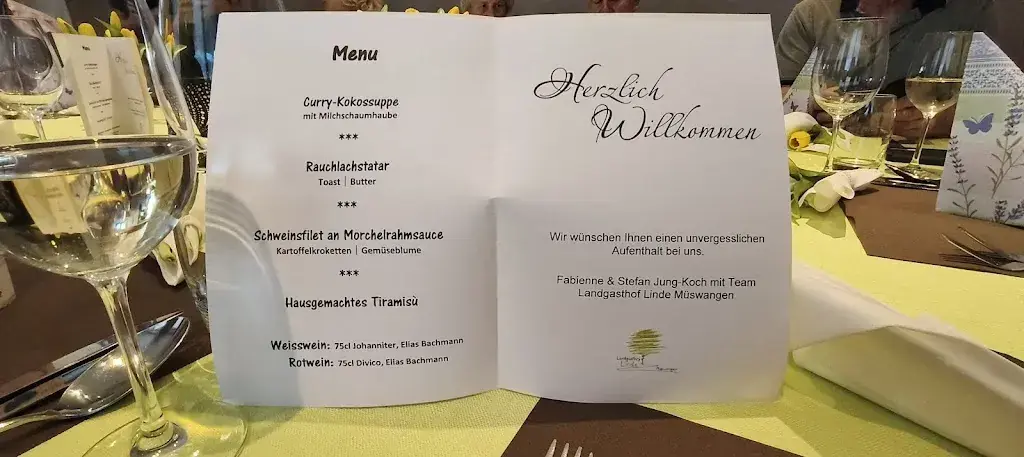 Menu
Curry-Kokossuppe
mit Milchschaumhaube
***
Rauchlachstatar
Toast | Butter
***
Schweinsfilet an Morchelrahmsauce
Kartoffelkroketten | Gemüseblume
***
Hausgemachtes Tiramisù
Weisswein: 75cl Johanniter, Elias Bachmann
Rotwein: 75cl Divico, Elias Bachmann
Herzlich
Willkommen
Wir wünschen Ihnen einen unvergesslichen
Aufenthalt bei uns.
Fabienne & Stefan Jung-Koch mit Team
Landgasthof Linde Müswangen
Landgasthof
Linde
Müswangen
Menu